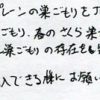 プレンの巣ごもりを丁
ごもり、春のさら巣
巣ごもりの存在を
入できる様にお願い